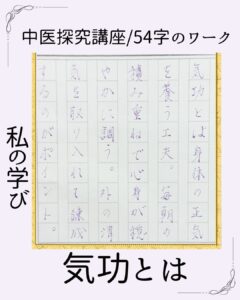 中医探究講座/54字のワーク
気功とは身体の正気
を養う工夫。毎朝の
積み重ねで心身が穏
やかに調う。外の清
気を取り入れて錬成
するのがポイント。
私の学び
気功とは